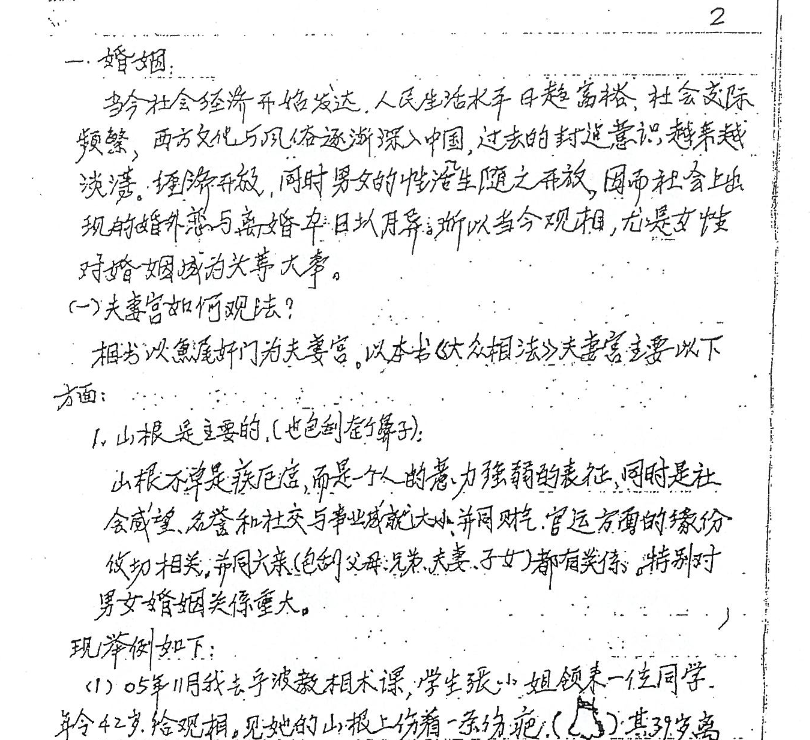 2
一. 婚姻:
当今社会经济开始发达,人民生活水平日趋富裕,社会交际
频繁,西方文化与风俗逐渐深入中国,过去的封建意识越来越
淡薄。经济开放,同时男女的性活生随之开放,因而社会上出
现的婚外恋与离婚率日以月异,所以当今观相,尤是女性
对婚姻成为头等大事。
(一)夫妻宫如何观法?
相书以鱼尾奸门为夫妻宫。以本书《大众相法》夫妻宫主要以下
方面:
1、山根是主要的,(也包刮在个鼻子):
山根不单是疾厄宫,而是一个人的意力强弱的表征,同时是社
会威望、名誉和社交与事业成就大小,并同财气、官运方面的缘份
攸切相关,并同六亲(包刮父母、兄弟、夫妻、子女)都有关係。特别对
男女婚姻关係重大。
现举例如下:
(1) 05年11月我去宁波教相术课,学生张小姐领来一位同学
年令42岁,给观相。见她的山根上伤着一条伤疤,( ):其39岁离